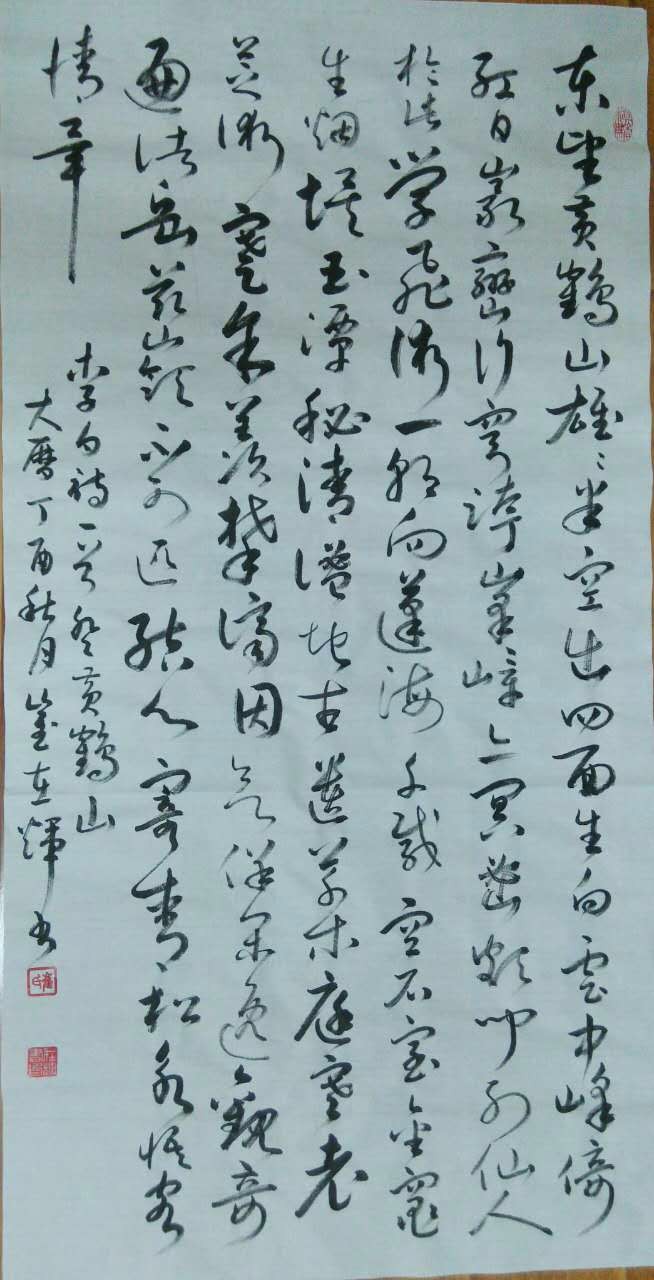 东望黄鹤山雄〻半空出四面生白雲中峰倚
红日巖巒行穹跨峯嶂亦冥密颇闻列仙人
於此学飛術一朝向蓬海千载空石室金竈
生烟埃玉潭秘清谧地古遗草木庭寒老
芝術蹇余羡攀跻因欲保闲逸觀奇
遍诸岳兹嶺不可匹结心寄青松永悟客
情毕
李白诗一首登黄鹤山
大曆丁酉秋月崔在輝书